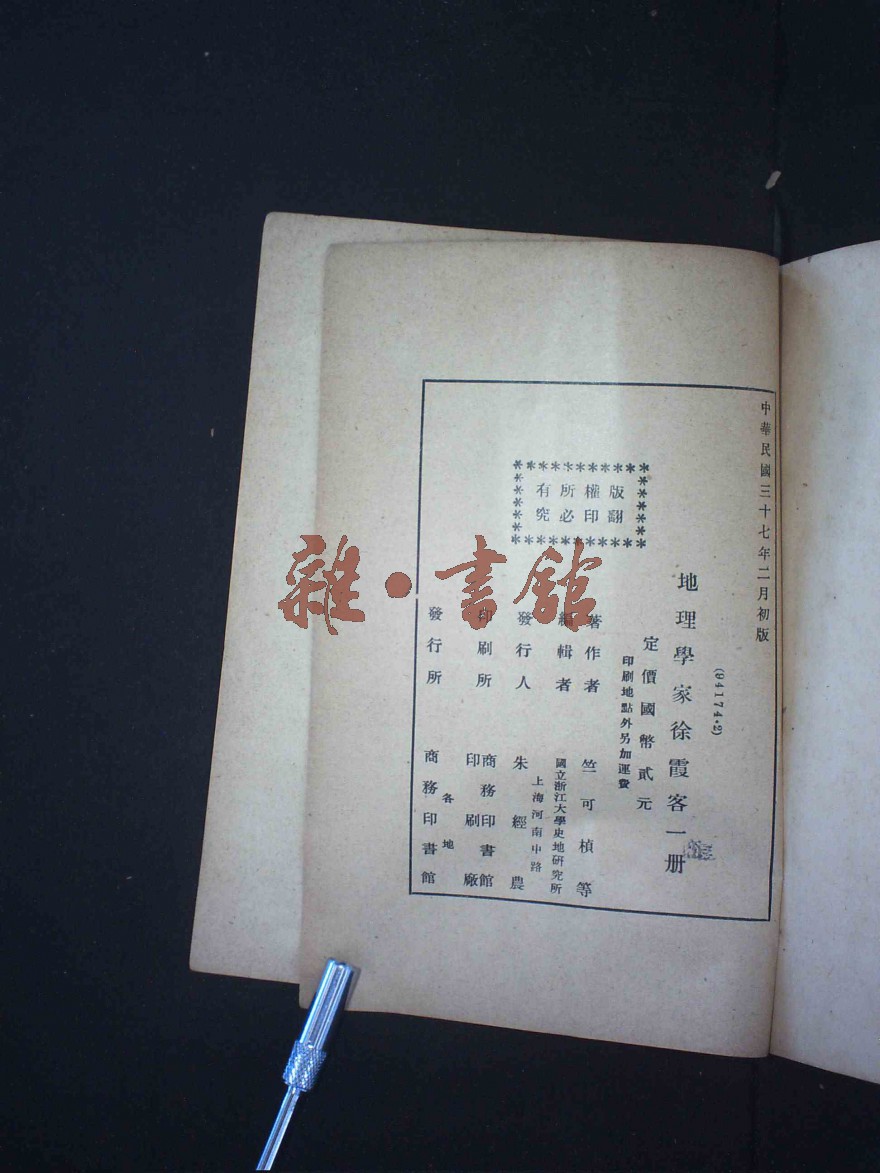 中華民國三十七年二月初版
(94174·2)
地理學家徐霞客一册
定價國幣貳元
印刷地點外另加運費
版權所有
翻印必究
著作者 竺可楨等
編輯者 國立浙江大學史地研究所
上海河南中路
發行人 朱經農
印刷所 商務印書館
印刷廠
發行所 各地
商務印書館
雜·書館